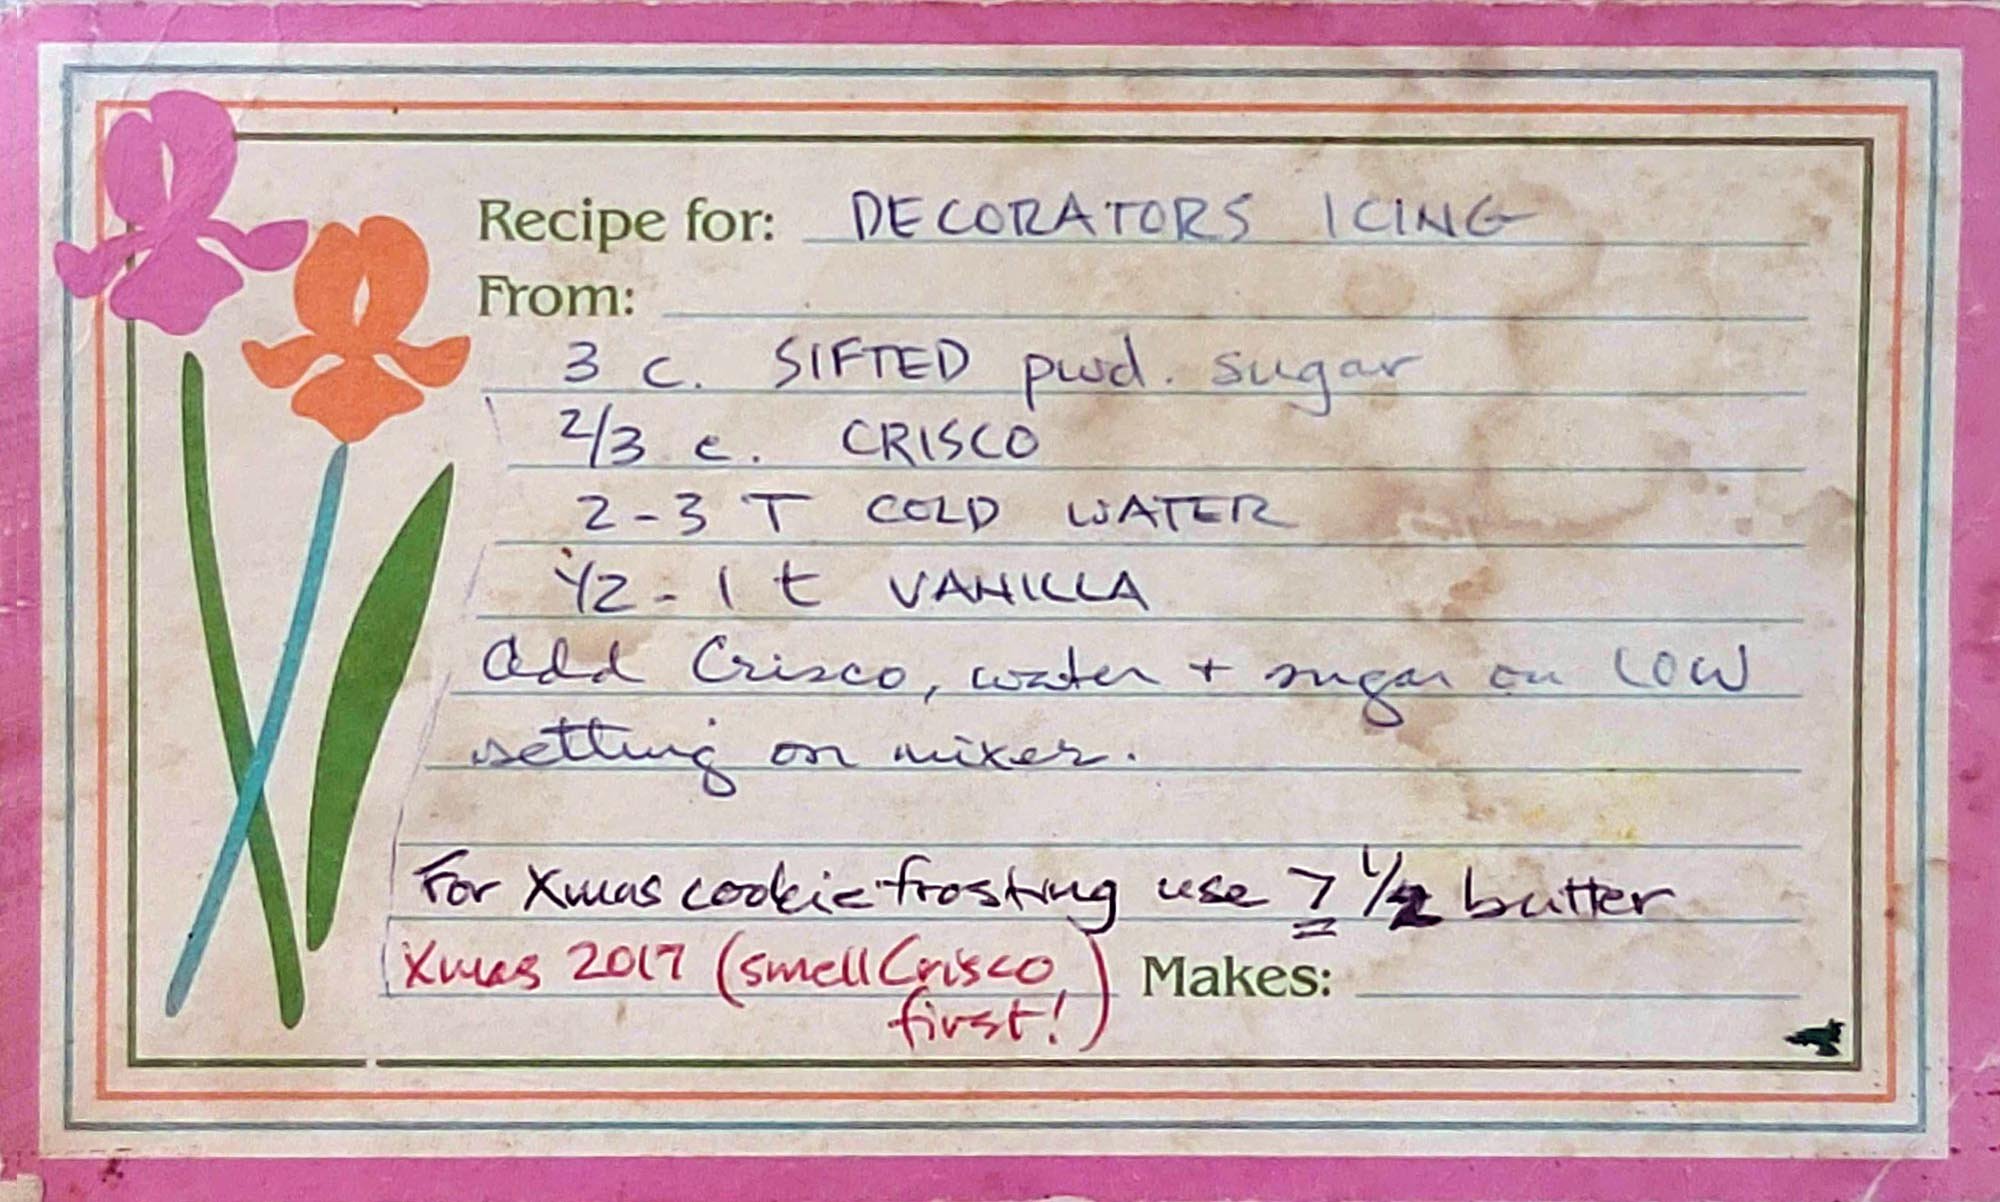 Recipe for: DECORATORS ICING
From:
3 c. SIFTED pwd. sugar
2/3 c. CRISCO
2-3 T COLD WATER
1/2 - 1 t VANILLA
Add Crisco, water + sugar on LOW
setting on mixer.
For Xmas cookie frosting use ≥ 1/2 butter
Xmas 2017 (smell Crisco Makes:
first!)